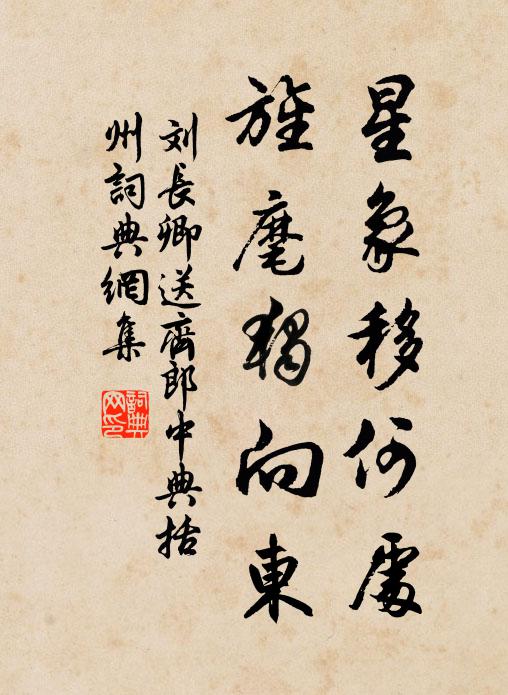 星象移何處
旌麾獨向東
刘長卿送齊郎中典括
州詞典網集
詞典网印